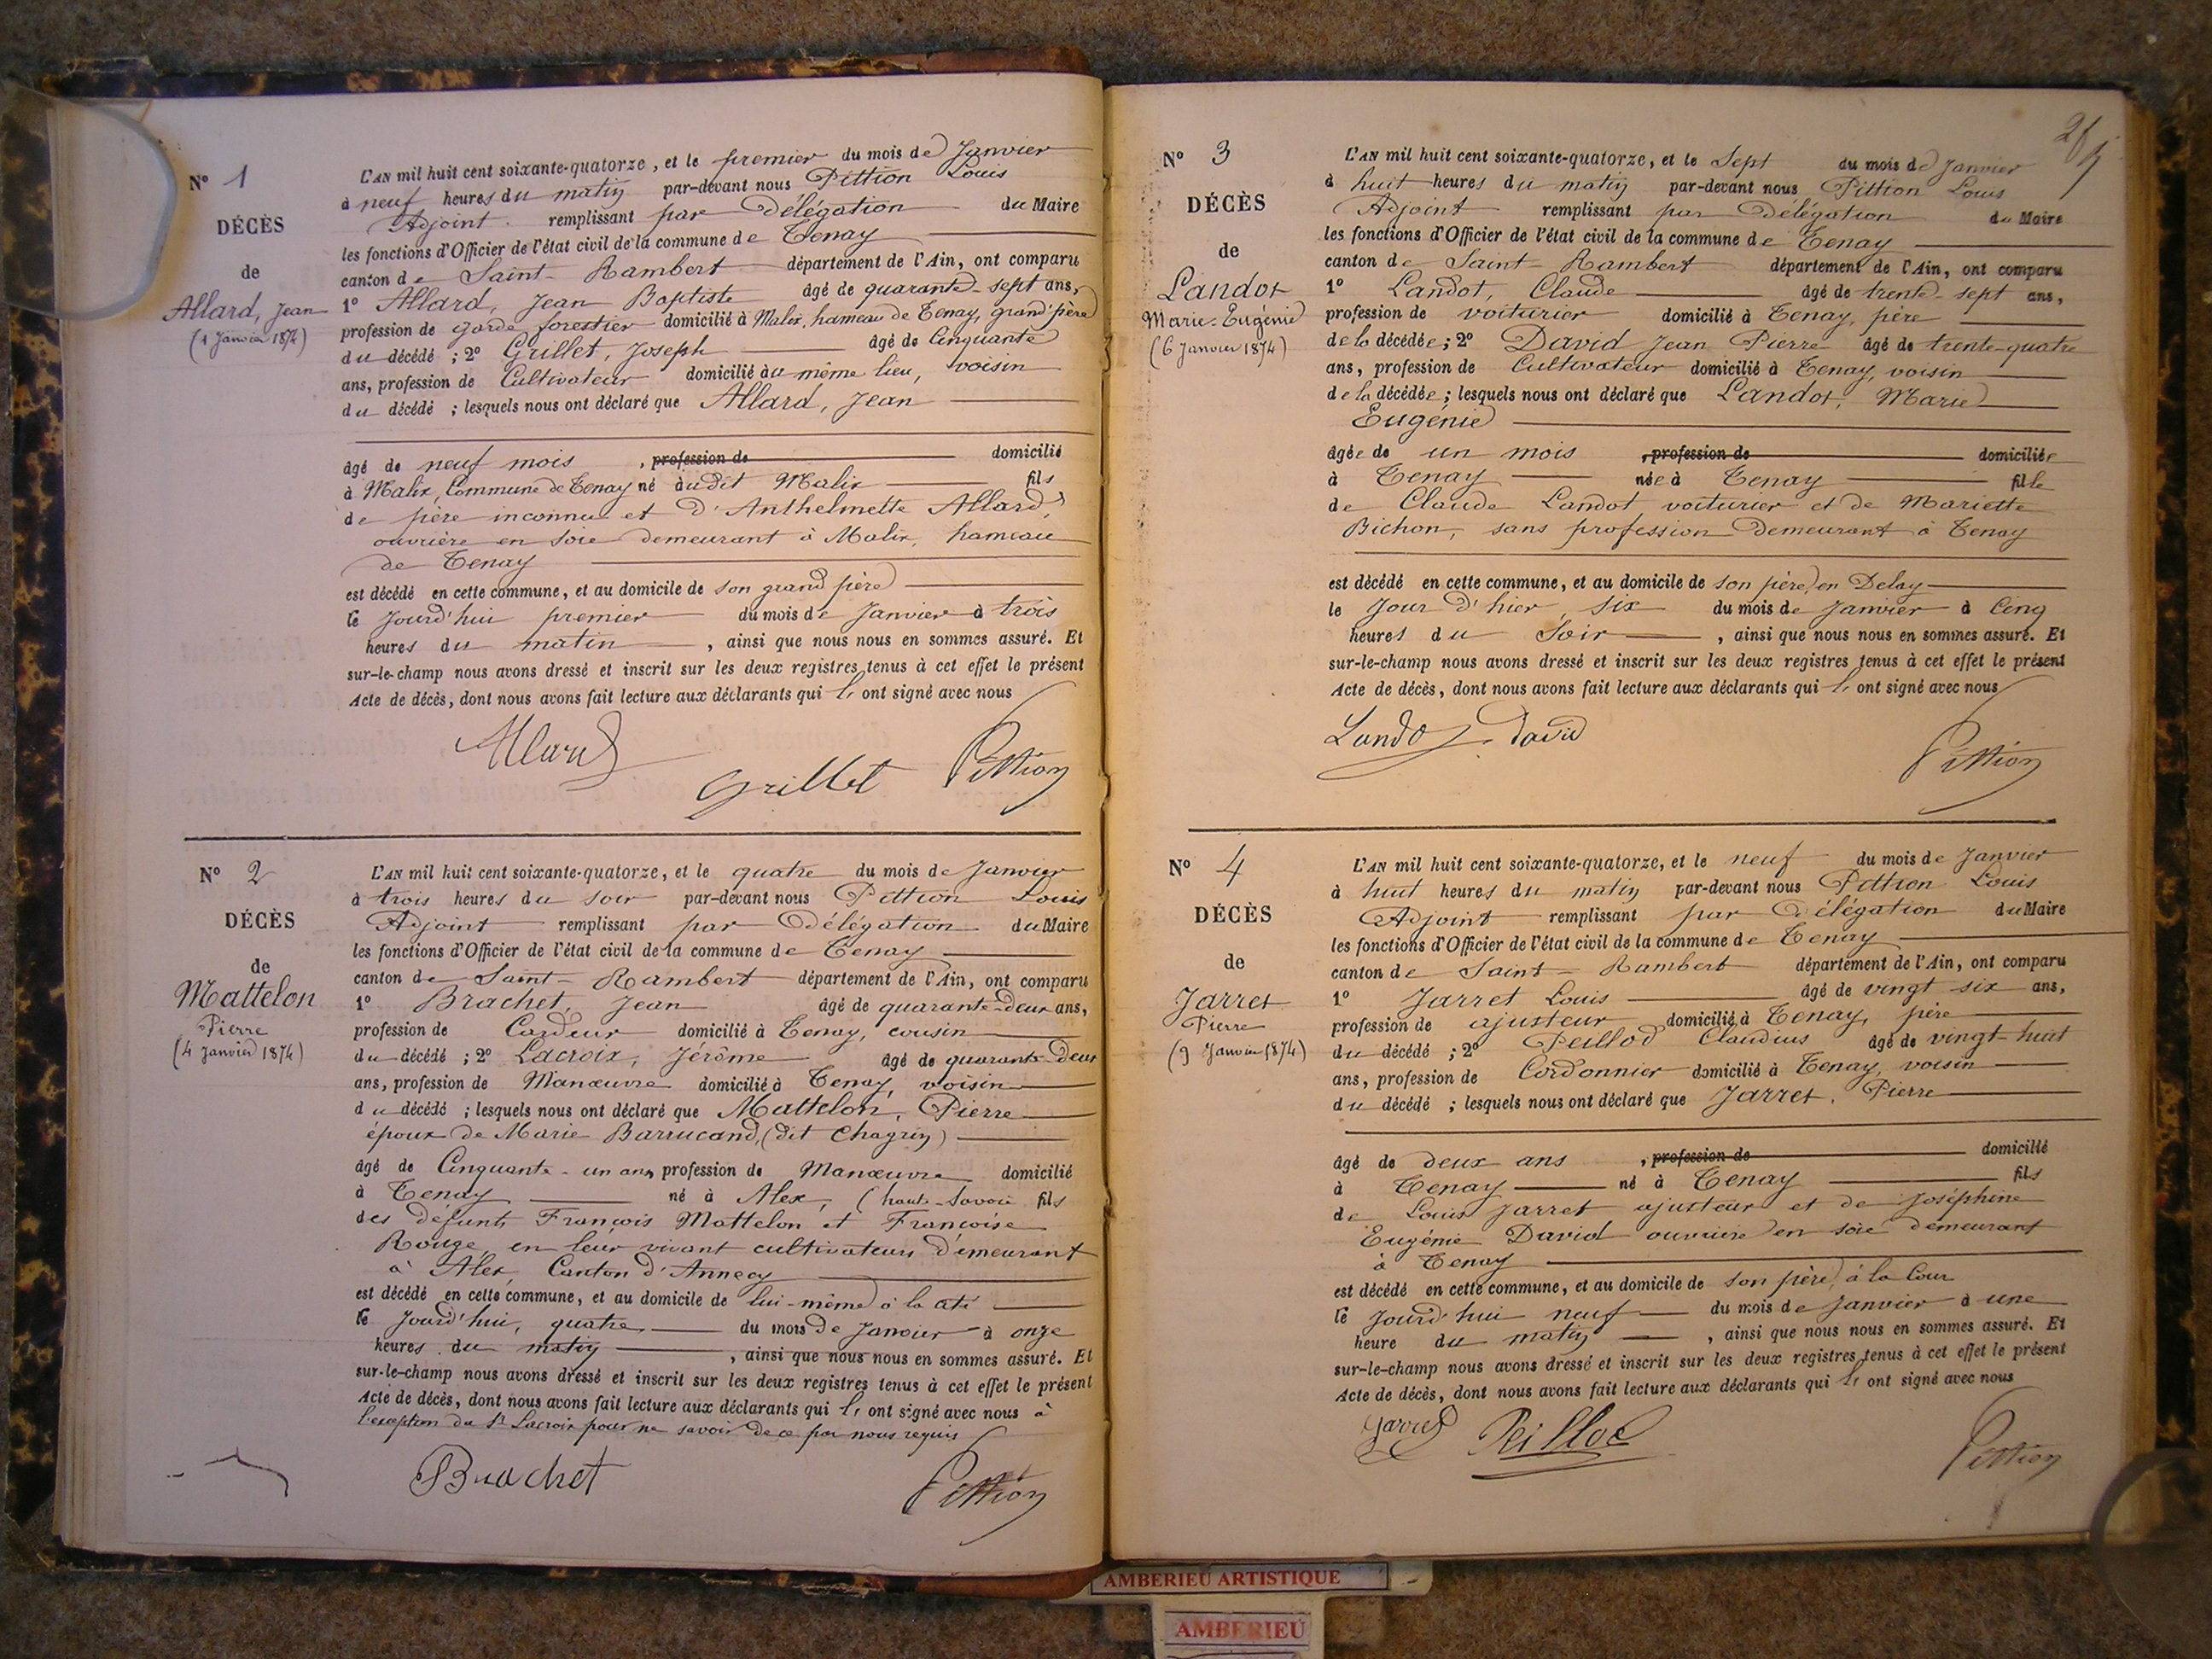 N° 1
DÉCÈS
de
Allard, Jean
(1 Janvier 1874)
L'AN mil huit cent soixante-quatorze, et le premier du mois de Janvier
à neuf heures du matin par-devant nous Pittion Louis
Adjoint remplissant par Délégation du Maire
les fonctions d'Officier de l'état civil de la commune de Tenay
canton de Saint-Rambert département de l'Ain, ont comparu
1° Allard, Jean Baptiste âgé de quarante-sept ans,
profession de garde forestier domicilié à Malix, hameau de Tenay, grand'père
du décédé ; 2° Grillet, Joseph âgé de Cinquante
ans, profession de Cultivateur domicilié au même lieu, voisin
du décédé ; lesquels nous ont déclaré que Allard, Jean
âgé de neuf mois , profession de domicilié
à Malix, Commune de Tenay né audit Malix fils
de père inconnu et d'Anthelmette Allard,
ouvrière en soie demeurant à Malix, hameau
de Tenay
est décédé en cette commune, et au domicile de son grand père
le Jourd'hui premier du mois de Janvier à trois
heures du matin , ainsi que nous nous en sommes assuré. Et
sur-le-champ nous avons dressé et inscrit sur les deux registres tenus à cet effet le présent
Acte de décès, dont nous avons fait lecture aux déclarants qui ont signé avec nous
Allard
Grillet Pittion
N° 2
DÉCÈS
de
Mattelon
Pierre
(4 Janvier 1874)
L'AN mil huit cent soixante-quatorze, et le quatre du mois de Janvier
à trois heures du soir par-devant nous Pittion Louis
Adjoint remplissant par Délégation du Maire
les fonctions d'Officier de l'état civil de la commune de Tenay
canton de Saint-Rambert département de l'Ain, ont comparu
1° Brachet, Jean âgé de quarante-deux ans,
profession de Cardeur domicilié à Tenay, cousin
du décédé ; 2° Lacroix, Jérôme âgé de quarante deux
ans, profession de Manœuvre domicilié à Tenay, voisin
du décédé ; lesquels nous ont déclaré que Mattelon, Pierre
époux de Marie Barrucand, (dit Chagrin)
âgé de Cinquante-un ans, profession de Manœuvre domicilié
à Tenay né à Alex, (haute-Savoie fils
des défunts François Mattelon et Françoise
Rouge, en leur vivant cultivateurs demeurant
à Alex, Canton d'Annecy
est décédé en cette commune, et au domicile de lui-même à la cité
le Jourd'hui, quatre du mois de Janvier à onze
heures du matin , ainsi que nous nous en sommes assuré. Et
sur-le-champ nous avons dressé et inscrit sur les deux registres tenus à cet effet le présent
Acte de décès, dont nous avons fait lecture aux déclarants qui ont signé avec nous à
l'exception du Sr Lacroix pour ne savoir de ce par nous requis
Brachet Pittion
N° 3
DÉCÈS
de
Landot
Marie-Eugénie
(6 Janvier 1874)
L'AN mil huit cent soixante-quatorze, et le Sept du mois de Janvier
à huit heures du matin par-devant nous Pittion Louis
Adjoint remplissant par Délégation du Maire
les fonctions d'Officier de l'état civil de la commune de Tenay
canton de Saint-Rambert département de l'Ain, ont comparu
1° Landot, Claude âgé de trente-sept ans,
profession de voiturier domicilié à Tenay, père
de la décédée ; 2° David Jean Pierre âgé de trente-quatre
ans, profession de Cultivateur domicilié à Tenay, voisin
de la décédée ; lesquels nous ont déclaré que Landot, Marie
Eugénie
âgée de un mois , profession de domiciliée
à Tenay née à Tenay fille
de Claude Landot voiturier et de Mariette
Bichon, sans profession demeurant à Tenay
est décédé en cette commune, et au domicile de son père, en Delay
le Jour d'hier six du mois de Janvier à Cinq
heures du Soir , ainsi que nous nous en sommes assuré. Et
sur-le-champ nous avons dressé et inscrit sur les deux registres tenus à cet effet le présent
Acte de décès, dont nous avons fait lecture aux déclarants qui ont signé avec nous
Landot David
Pittion
N° 4
DÉCÈS
de
Jarret
Pierre
(9 Janvier 1874)
L'AN mil huit cent soixante-quatorze, et le neuf du mois de Janvier
à huit heures du matin par-devant nous Pittion Louis
Adjoint remplissant par Délégation du Maire
les fonctions d'Officier de l'état civil de la commune de Tenay
canton de Saint-Rambert département de l'Ain, ont comparu
1° Jarret Louis âgé de vingt six ans,
profession de ajusteur domicilié à Tenay, père
du décédé ; 2° Peillod Claudius âgé de vingt-huit
ans, profession de Cordonnier domicilié à Tenay, voisin
du décédé ; lesquels nous ont déclaré que Jarret, Pierre
âgé de deux ans , profession de domicilié
à Tenay né à Tenay fils
de Louis Jarret ajusteur et de Joséphine
Eugénie David ouvrière en soie demeurant
à Tenay
est décédé en cette commune, et au domicile de son père, à la Cour
le Jourd'hui neuf du mois de Janvier à une
heure du matin , ainsi que nous nous en sommes assuré. Et
sur-le-champ nous avons dressé et inscrit sur les deux registres tenus à cet effet le présent
Acte de décès, dont nous avons fait lecture aux déclarants qui ont signé avec nous
Jarret Peillod
Pittion
AMBERIEU ARTISTIQUE
AMBERIEU